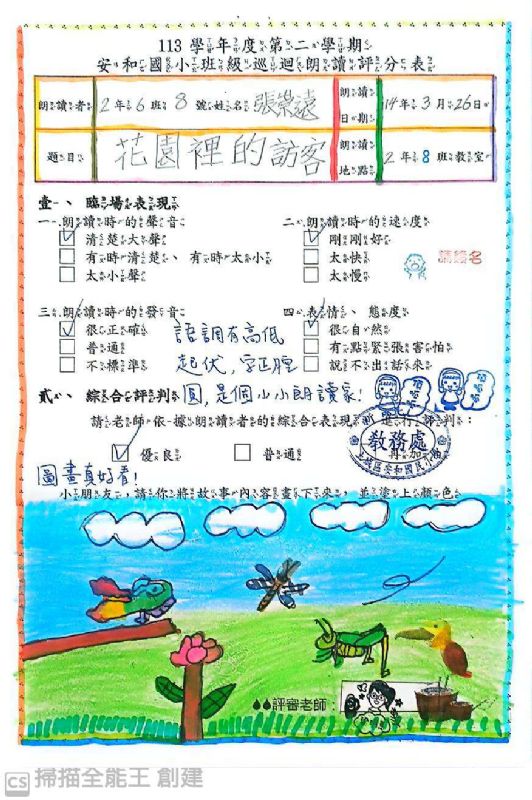 113 學年度第二學期
安和國小班級巡迴朗讀評分表
朗讀者 2年6班8號姓名 張榮遠 朗讀日期 114年3月26日
題目 花園裡的訪客 朗讀地點 2年8班教室
壹、 臨場表現
一、朗讀時的聲音
清楚大聲
有時清楚、有時太小
太小聲
二、朗讀時的速度
剛剛好
太快
太慢
請簽名
三、朗讀時的發音
很正確
普通
不標準
語調有高低
起伏,字正腔
圓,是個小小朗讀家!
四、表情、態度
很自然
有點緊張害怕
說不出話來
貳、 綜合評判
請老師依據朗讀者的綜合表現,進行評判:
優良 普通 再加油
教務處
圖畫真好看!
小朋友,請你將故事內容畫下來,並塗上顏色
評審老師:
CS 掃描全能王 創建